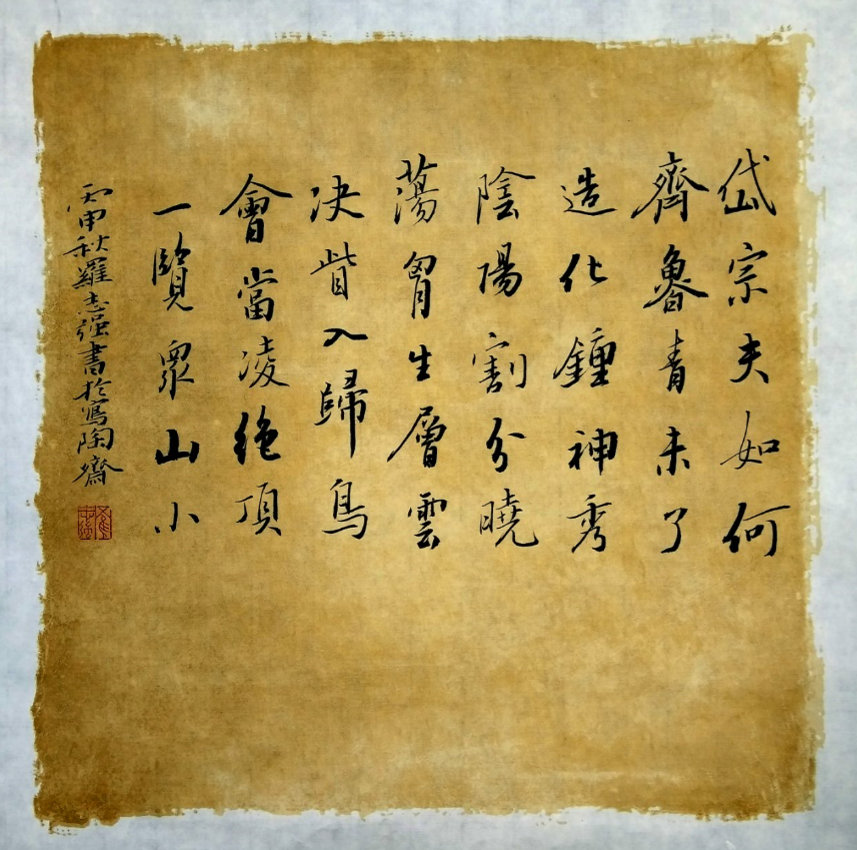 岱宗夫如何
齊魯青未了
造化鍾神秀
陰陽割分曉
蕩胷生層雲
决眥入歸鳥
會當凌絶頂
一覽衆山小
丙申秋羅志强書於寫陶齋